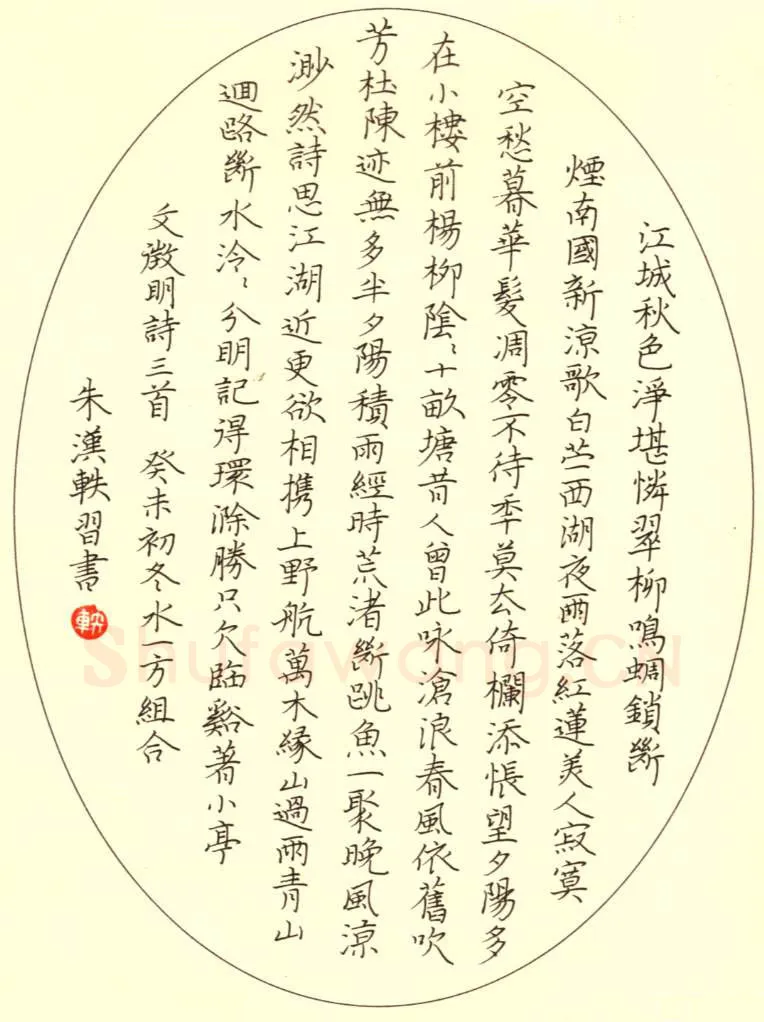 江城秋色淨堪憐翠柳鳴蜩鎖斷
煙南國新涼歌白苧西湖夜雨落紅蓮美人寂寞
空愁暮華髮凋零不待年莫去倚欄添悵望夕陽多
在小樓前楊柳陰〻十畝塘昔人曾此咏滄浪春風依舊吹
芳杜陳迹無多半夕陽積雨經時荒渚斷跳魚一聚晚風涼
渺然詩思江湖近更欲相携上野航萬木緣山過雨青山
迴路斷水泠〻分明記得環滁勝只欠臨谿著小亭
文徵明詩三首 癸未初冬水一方組合
朱漢軼習書
軼
Shufawang.CN